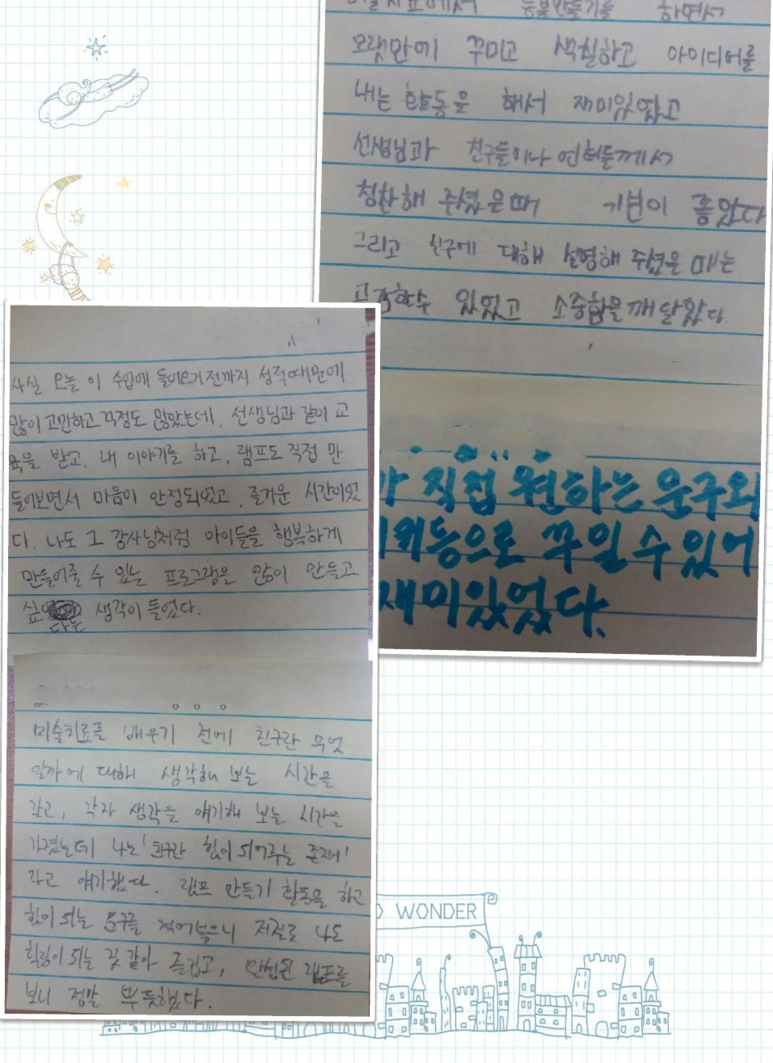 미술치료에서 등불만들기를 하면서
오랫만에 꾸미고 색칠하고 아이디어를
내는 활동을 해서 재미있었고
선생님과 친구들이나 언니들께서
칭찬해 주셨을때 기분이 좋았다
그리고 친구에 대해 설명해 주셨을 때는
있었고 소중함을 깨달았다
직접 원하는 문구와
등으로 꾸밀 수 있어
재미있었다.
사실 오늘 이 수업에 들어오기전까지 성적때문에
많이 고민하고 걱정도 많았는데, 선생님과 같이 교
육을 받고, 내 이야기를 하고, 램프도 직접 만
들어보면서 마음이 안정되었고, 즐거운 시간이었
다. 나도 그 강사님처럼 아이들을 행복하게
만들어줄 수 있는 프로그램을 많이 만들고
싶다는 생각이 들었다.
미술치료를 배우기 전에 친구란 무엇
일까에 대해 생각해 보는 시간을
갖고, 각자 생각을 얘기해 보는 시간을
가졌는데 나는 '친구란 힘이 되어주는 존재'
라고 얘기했다. 램프 만들기 활동을 하고
힘이 되는 문구를 적어넣으니 저절로 나도
힐링이 되는 것 같아 즐겁고, 완성된 램프를
보니 정말 뿌듯했다.
WONDER